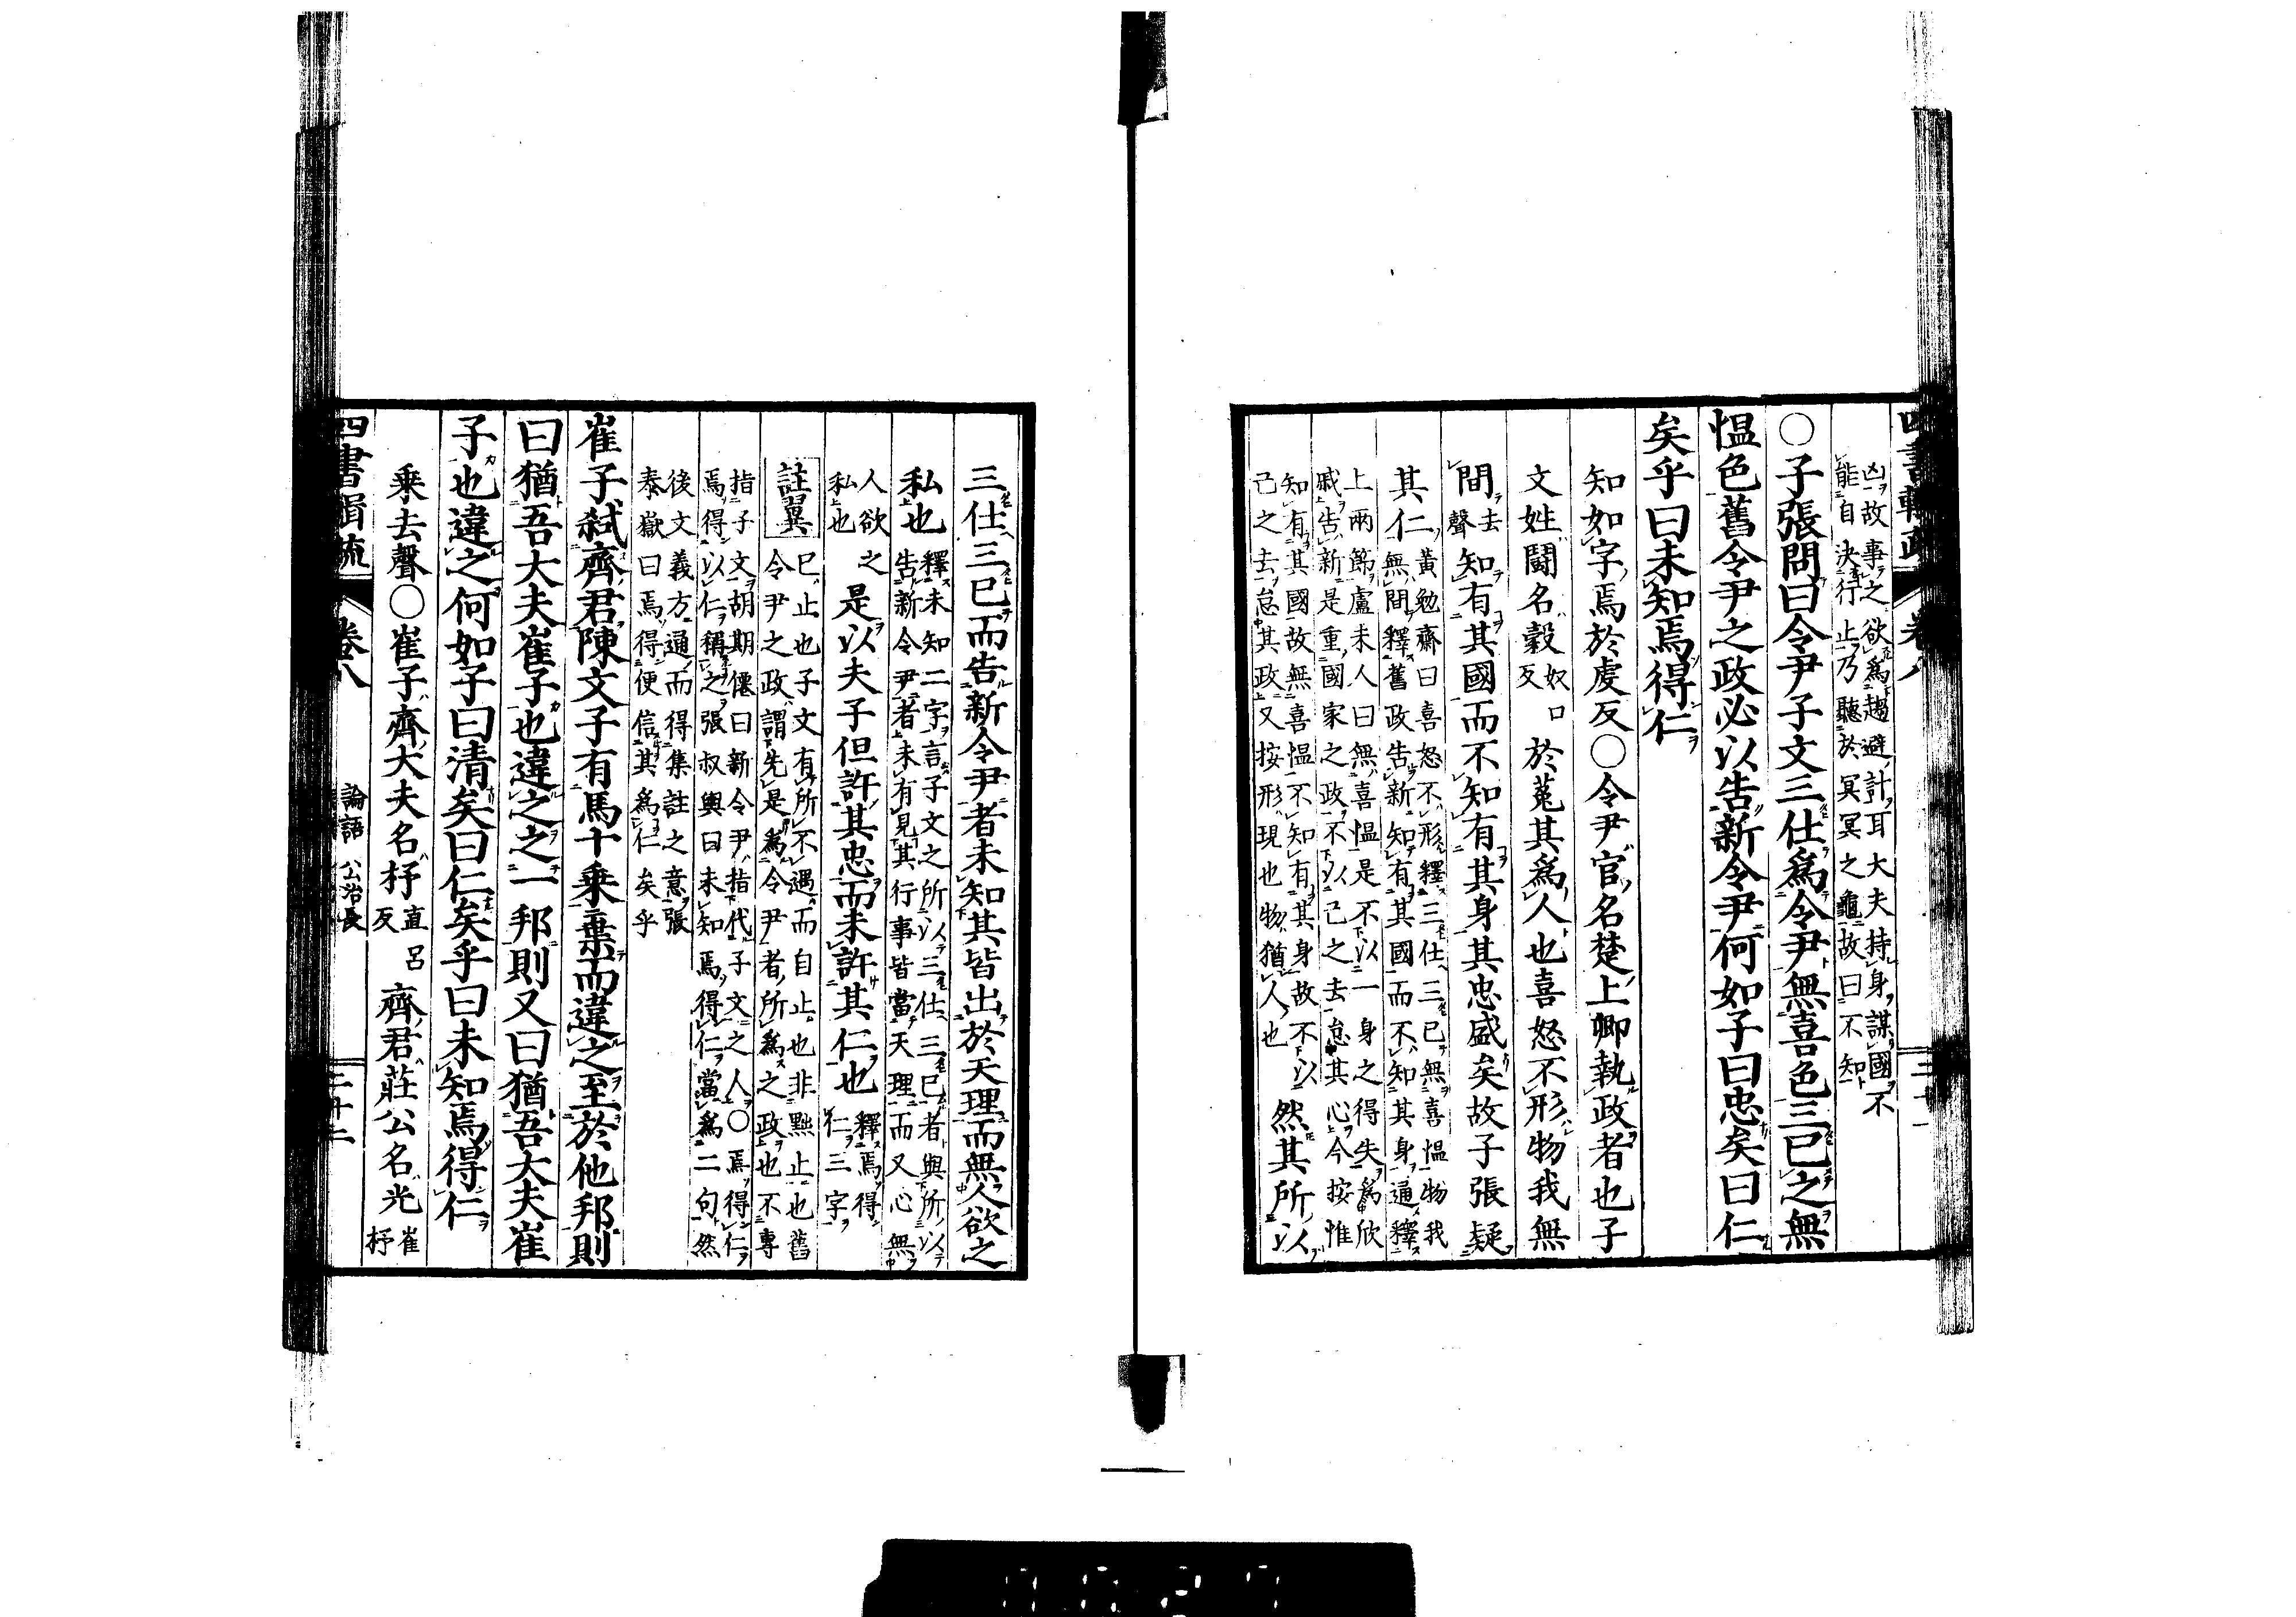 四書輯疏 卷八
凶故事之欲爲趨避計耳大夫持身謀國不
能自決行止乃聽於冥冥之龜故曰不知
○子張問曰令尹子文三仕爲令尹無喜色三已之無
慍色舊令尹之政必以告新令尹何如子曰忠矣曰仁
矣乎曰未知焉得仁
知如字焉於虔反○令尹官名楚上卿執政者也子
文姓鬭名穀奴口反於菟其爲人也喜怒不形物我無
間去聲知有其國而不知有其身其忠盛矣故子張疑
其仁黃勉齋曰喜怒不形釋三仕三已無喜慍物我
無間釋舊政告新知有其國而不知其身通釋
上兩節盧未人曰無喜慍是不以一身之得失爲欣
戚告新是重國家之政不以己之去怠其心今按惟
知有其國故無喜慍不知有其身故不以
己之去怠其政又按形現也物猶人也然其所以
三仕三已而告新令尹者未知其皆出於天理而無人欲之
私也釋未知二字言子文之所以三仕三已者與所以
告新令尹者未有見其行事皆當天理而又心無
人欲之
私也是以夫子但許其忠而未許其仁也釋焉得
仁三字
註翼已止也子文有所不遇而自止也非黜止也舊
令尹之政謂先是爲令尹者所爲之政也不專
指子文胡期僊曰新令尹指代子文之人○焉得仁
焉得以仁稱之張叔輿曰未知焉得仁當爲二句然
後文義方通而得集註之意張
泰嶽曰焉得便信其爲仁矣乎
崔子弑齊君陳文子有馬十乗棄而違之至於他邦則
曰猶吾大夫崔子也違之之一邦則又曰猶吾大夫崔
子也違之何如子曰清矣曰仁矣乎曰未知焉得仁
乗去聲○崔子齊大夫名杼直呂反齊君莊公名光崔
杼
四書輯疏 卷八 論語 公冶長 二十二